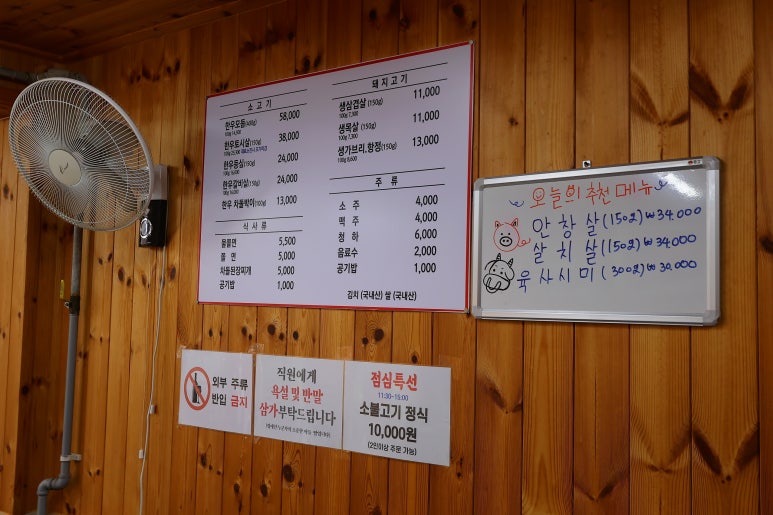 소 고 기
한우모둠(400g) 58,000
100g 14,500
한우토시살(150g) 38,000
한우등심(150g) 24,000
100g 16,000
한우갈비살(150g) 24,000
100g 16,000
한우 차돌박이(150g) 13,000
식 사 류
물쫄면 5,500
쫄 면 5,000
차돌된장찌개 5,000
공기밥 1,000
돼 지 고 기
생삼겹살(150g) 11,000
100g 7,300
생목살(150g) 11,000
100g 7,300
생가브리,항정(150g) 13,000
100g 8,600
주 류
소 주 4,000
맥 주 4,000
청 하 6,000
음료수 2,000
공기밥 1,000
김치 (국내산) 쌀 (국내산)
오늘의 추천 메뉴
안창살(150g) ₩34,000
살치살(150g) ₩34,000
육사시미(300g) ₩30,000
외부 주류
반입 금지
직원에게
욕설 및 반말
삼가부탁드립니다
점심특선
11:30~15:00
소불고기 정식
10,000원
(2인이상 주문 가능)